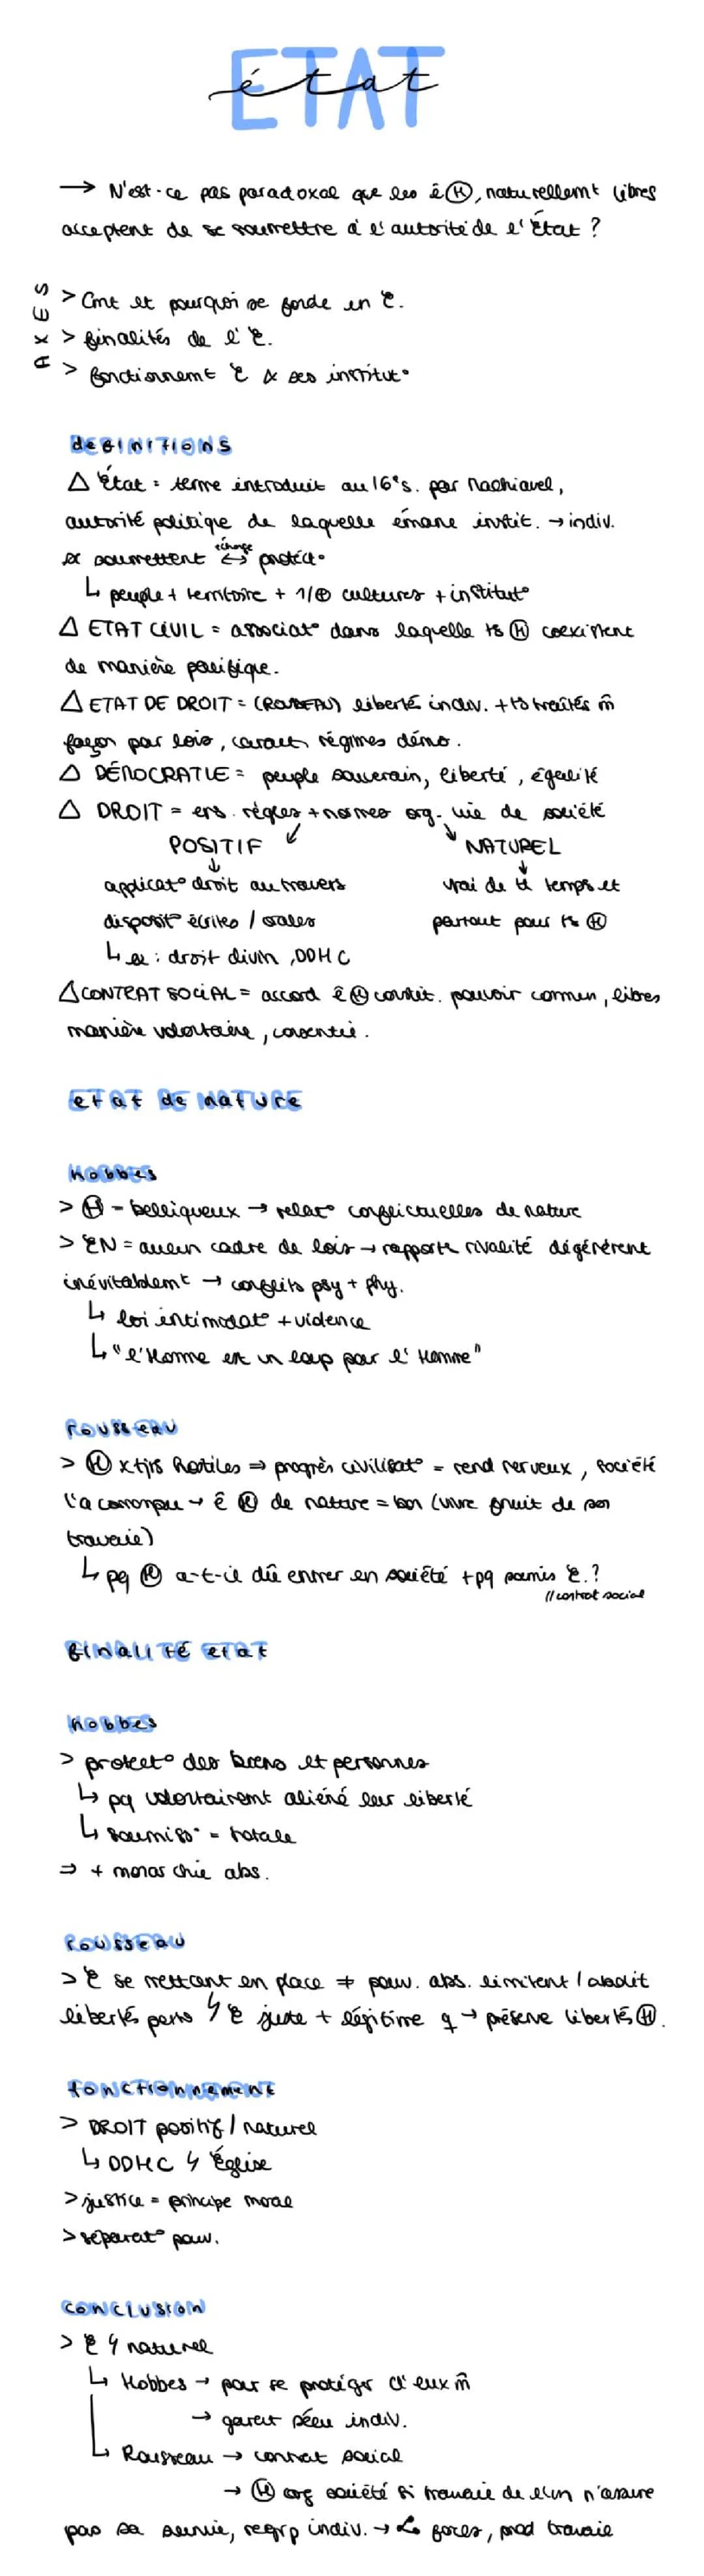 ETAT
état
→ N'est-ce pas paradoxal que les ê Ⓗ, naturellemt libres
acceptent de se soumettre à l'autorité de l'État ?
AXES
> Cmt et pourquoi se fonde en É.
> finalités de l'É.
> fonctionnemt É & ses institut°
definitions
△ État = terme introduit au 16ᵉs. par Machiavel,
autorité politique de laquelle émane instit. → indiv.
se soumettent échange ↔ protect°
↳ peuple + territoire + 1/⊕ cultures + institut°
△ ETAT CIVIL = associat° dans laquelle ts Ⓗ coexistent
de manière pacifique.
△ ETAT DE DROIT = (ROUSSEAU) liberté indiv. + ts traités m̂
façon par lois, caract. régimes démo.
△ DÉMOCRATIE = peuple souverain, liberté, égalité
△ DROIT = ens. règles + normes org. vie de société
POSITIF ↙ ↘ NATUREL
↓ ↓
applicat° droit au travers vrai de tt temps et
disposit° écrites / orales partout pour ts Ⓗ
↳ ex : droit divin, DDHC
△ CONTRAT SOCIAL = accord ê Ⓗ constit. pouvoir commun, libres
manière volontaire, consentie.
etat de nature
hobbes
> Ⓗ = belliqueux → relat° conflictuelles de nature
> EN = aucun cadre de lois → rapports rivalité dégénèrent
inévitablemt → conflits psy + phy.
↳ loi intimidat° + violence
↳ "l'Homme est un loup pour l'Homme"
rousseau
> Ⓗ x tjrs hostiles ⇒ progrès civilisat° = rend nerveux, société
l'a corrompu → ê Ⓗ de nature = bon (vivre fruit de son
travail)
↳ pq Ⓗ a-t-il dû entrer en société + pq soumis É. ?
// contrat social
finalité etat
hobbes
> protect° des biens et personnes
↳ pq volontairemt aliéné leur liberté
↳ soumiss° = totale
⇒ + monarchie abs.
rousseau
> É se mettant en place ≠ pouv. abs. limitent / abolit
libertés perso ϟ É juste + légitime q → préserve libertés Ⓗ.
fonctionnement
> DROIT positif / naturel
↳ DDHC ϟ Église
> justice = principe moral
> séparat° pouv.
conclusion
> É ϟ naturel
↳ Hobbes → pour se protéger d'eux m̂
→ garant sécu indiv.
↳ Rousseau → contrat social
→ Ⓗ org société si travail de l'un n'assure
pas sa survie, regrp indiv. → forces, prod travail